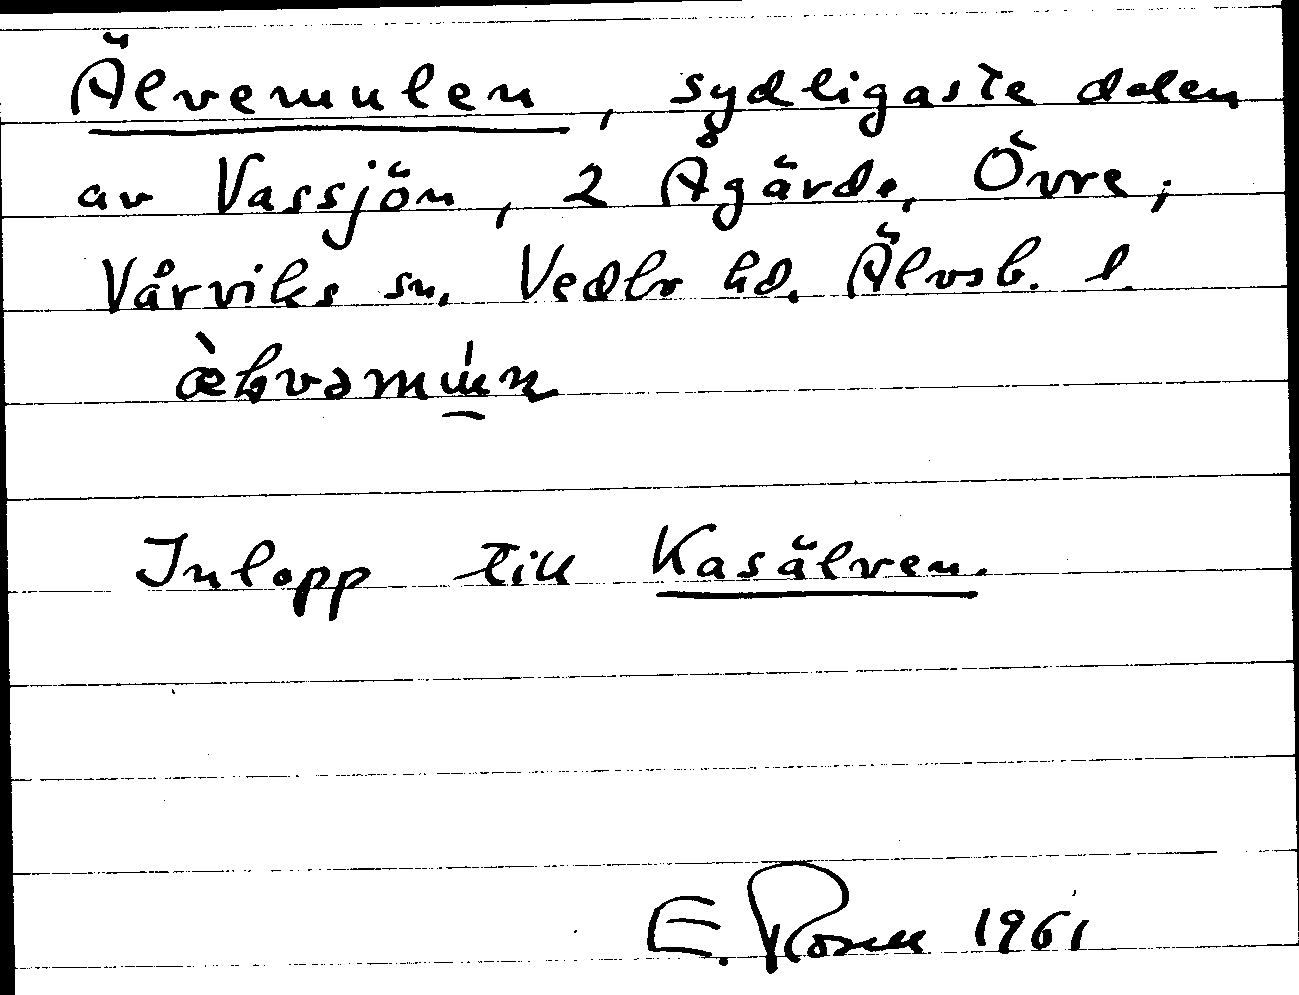 Älvemulen, sydligaste delen
av Vassjön, 2 Ågärde, Övre,
Vårviks sn. Vedbo hd. Älvsb. l.
Inlopp till Kasälven.
E. Rosell 1961